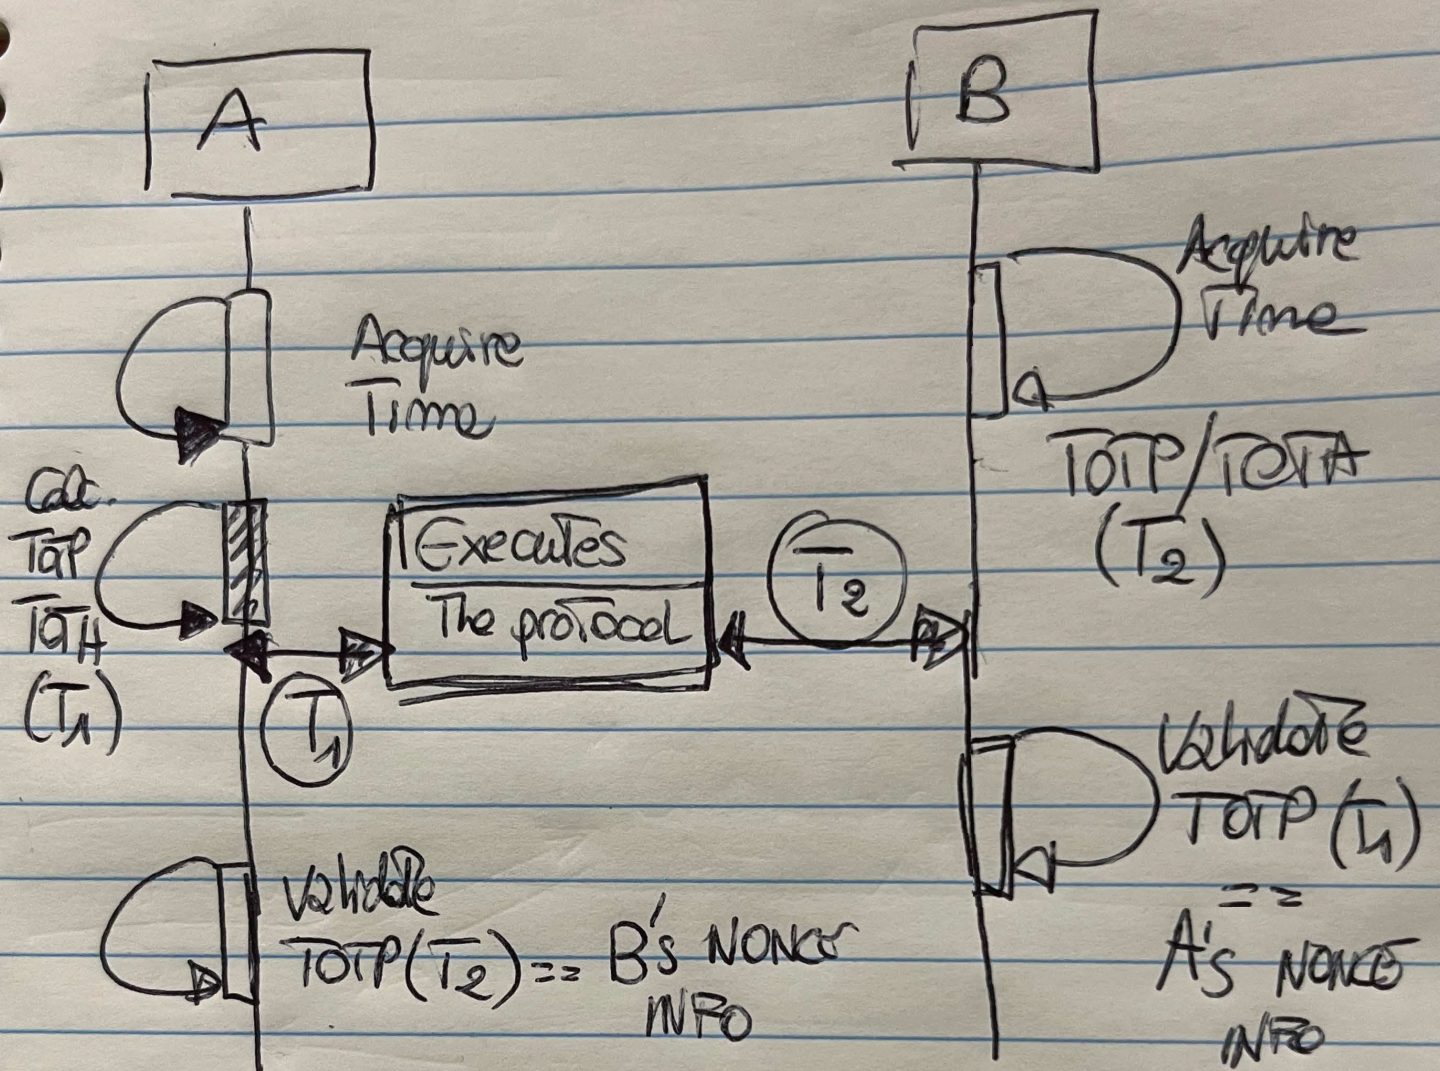 A
B
Acquire
Time
Acquire
Time
Calc.
TOTP
TOTH
(T1)
Executes
The protocol
T2
TOTP/TOTA
(T2)
T1
Validate
TOTP (T1)
==
A's NONCE
INFO
Validate
TOTP(T2) == B's NONCE
INFO